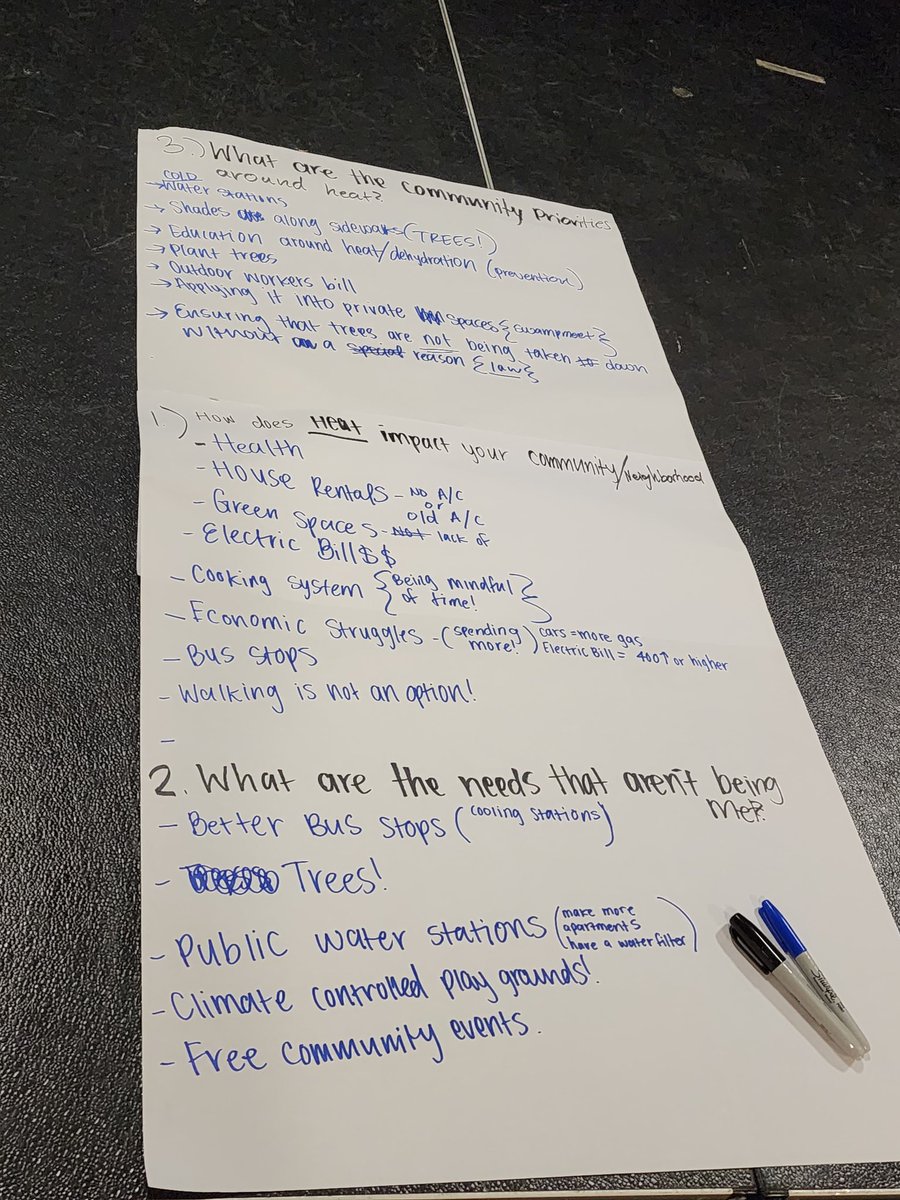 3.) What are the Community Priorities
around heat?
→ COLD Water stations
→ Shades along sidewalks (TREES!)
→ Education around heat/dehydration (prevention)
→ Plant trees
→ Outdoor workers bill
→ Applying it into private spaces
→ Ensuring that trees are not being taken down
without a reason {law}
1.) How does Heat impact your community/Neighborhood
- Health
- House Rentals - No A/C
or
old A/C
- Green Spaces - lack of
- Electric Bill$$
- Cooking system {Being mindful
of time!}
- Economic Struggles - (spending
more!) cars = more gas
Electric Bill = 400↑ or higher
- Bus Stops
- Walking is not an option!
-
2. What are the needs that aren't being
met?
- Better Bus Stops (cooling stations)
- Trees!
- Public water stations (make more
apartments
have a water filter)
- Climate controlled play grounds!
- Free community events.
Sharpie